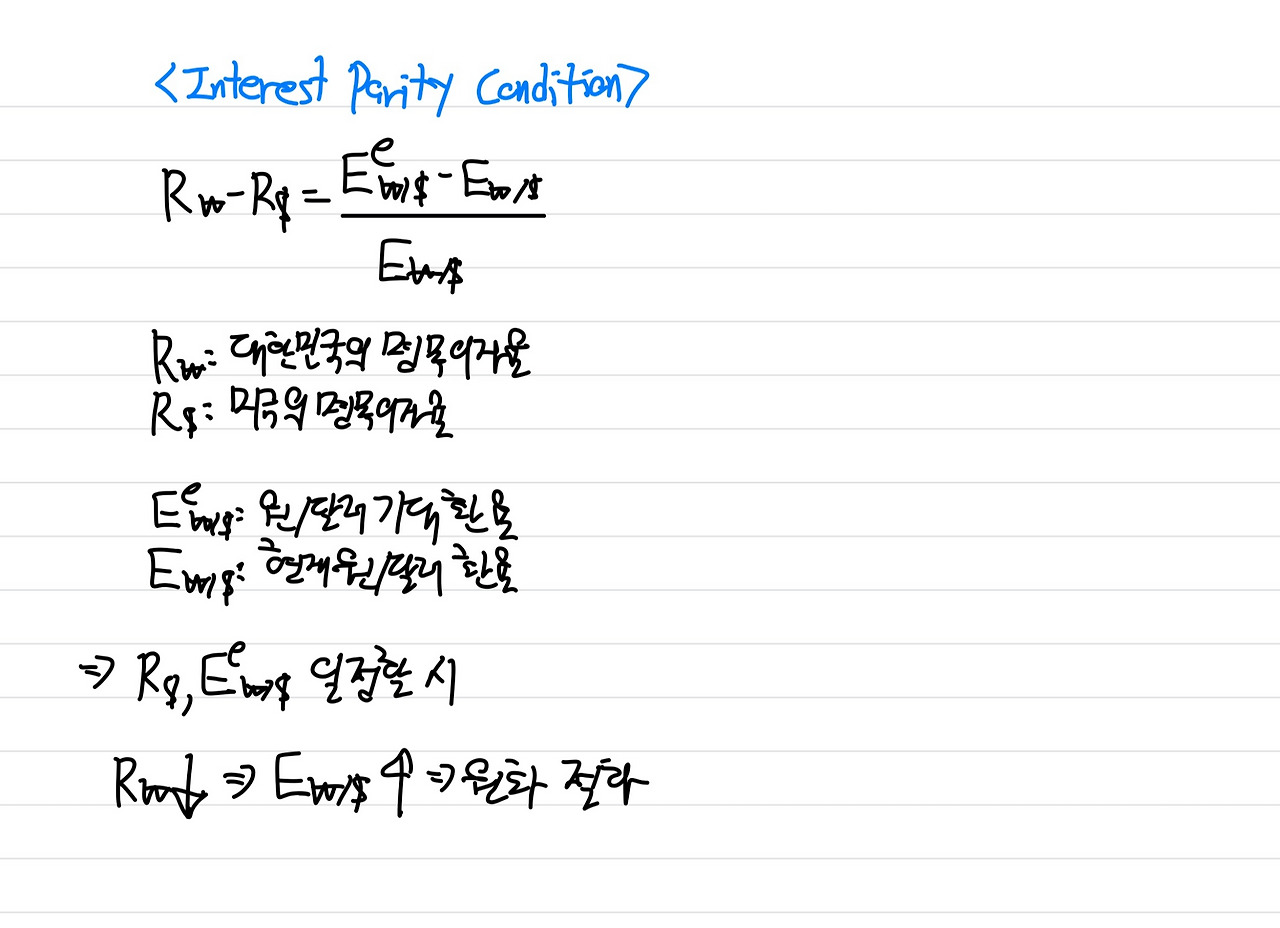 <Interest Parity Condition>
R₩ - R$ = (E^e₩/$ - E₩/$) / E₩/$
R₩: 대한민국의 명목이자율
R$: 미국의 명목이자율
E^e₩/$: 원/달러 기대환율
E₩/$: 현재 원/달러 환율
⇒ R$, E^e₩/$ 일정할 시
R₩↓ ⇒ E₩/$ ↑ ⇒ 원화 절하